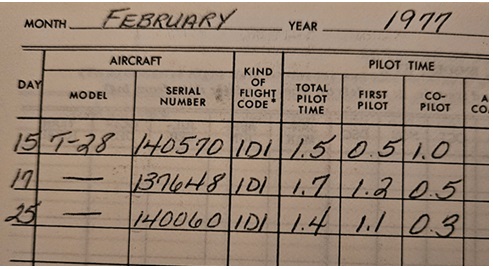 MONTH FEBRUARY YEAR 1977
AIRCRAFT PILOT TIME
DAY MODEL SERIAL NUMBER KIND OF FLIGHT CODE* TOTAL PILOT TIME FIRST PILOT CO-PILOT
15 T-28 140570 1D1 1.5 0.5 1.0
17 — 137648 1D1 1.7 1.2 0.5
25 — 140060 1D1 1.4 1.1 0.3